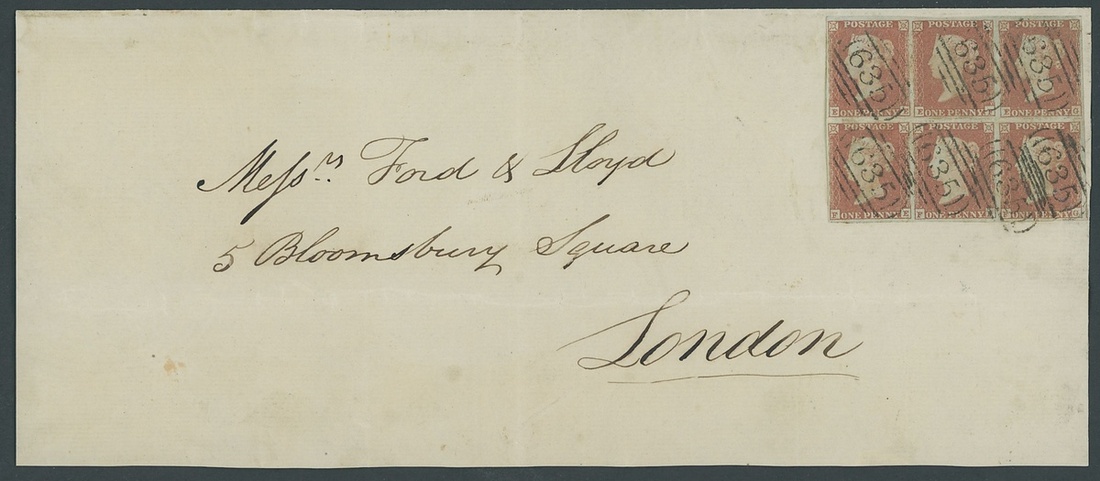 POSTAGE POSTAGE
E ONE PENNY E ONE PENNY E ONE PENNY G
635 635 635
POSTAGE POSTAGE POSTAGE
F ONE PENNY E F ONE PENNY F ONE PENNY G
635 635 635 635
Messrs Ford & Lloyd
5 Bloomsbury Square
London